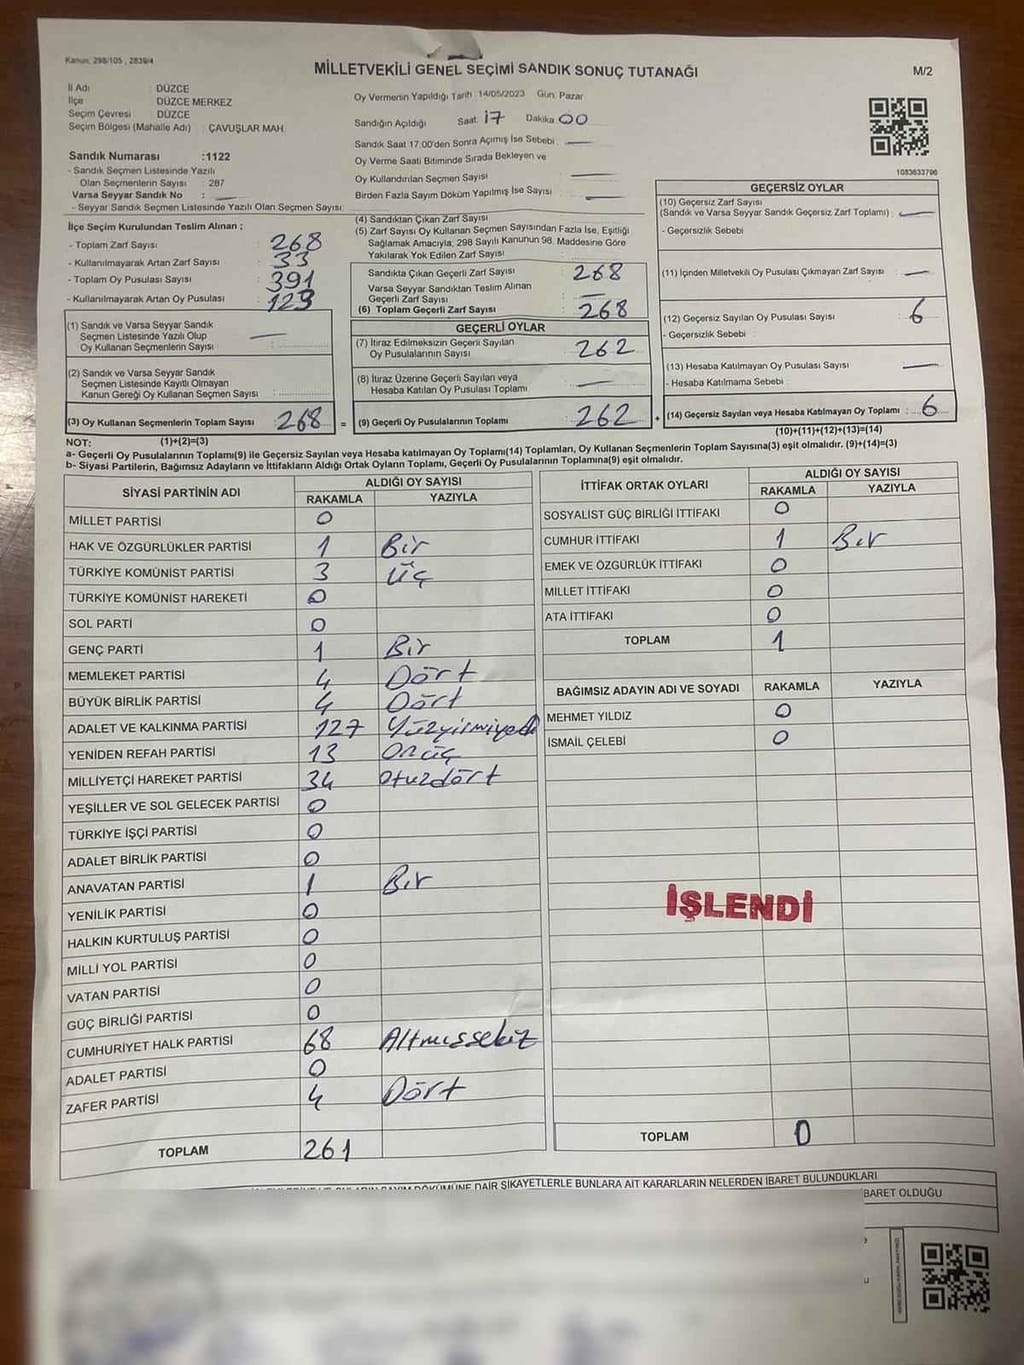 Kanun: 298/105 , 2839/4
MİLLETVEKİLİ GENEL SEÇİMİ SANDIK SONUÇ TUTANAĞI
M/2
İl Adı DÜZCE
İlçe DÜZCE MERKEZ
Seçim Çevresi DÜZCE
Seçim Bölgesi (Mahalle Adı) : ÇAVUŞLAR MAH.
Sandık Numarası :1122
- Sandık Seçmen Listesinde Yazılı
Olan Seçmenlerin Sayısı : 287
Varsa Seyyar Sandık No :
- Seyyar Sandık Seçmen Listesinde Yazılı Olan Seçmen Sayısı:
Oy Vermenin Yapıldığı Tarih :14/05/2023 Gün: Pazar
Sandığın Açıldığı Saat: 17 Dakika 00
Sandık Saat 17:00'den Sonra Açımış İse Sebebi :
Oy Verme Saati Bitiminde Sırada Bekleyen ve
Oy Kullandırılan Seçmen Sayısı :
Birden Fazla Sayım Döküm Yapılmış İse Sayısı :
1083633796
İlçe Seçim Kurulundan Teslim Alınan ;
- Toplam Zarf Sayısı : 268
- Kullanılmayarak Artan Zarf Sayısı : 33
- Toplam Oy Pusulası Sayısı : 391
- Kullanılmayarak Artan Oy Pusulası : 123
(1) Sandık ve Varsa Seyyar Sandık
Seçmen Listesinde Yazılı Olup
Oy Kullanan Seçmenlerin Sayısı :
(2) Sandık ve Varsa Seyyar Sandık
Seçmen Listesinde Kayıtlı Olmayan
Kanun Gereği Oy Kullanan Seçmen Sayısı :
(3) Oy Kullanan Seçmenlerin Toplam Sayısı : 268 =
(4) Sandıktan Çıkan Zarf Sayısı :
(5) Zarf Sayısı Oy Kullanan Seçmen Sayısından Fazla İse, Eşitliği
Sağlamak Amacıyla, 298 Sayılı Kanunun 98. Maddesine Göre
Yakılarak Yok Edilen Zarf Sayısı :
Sandıkta Çıkan Geçerli Zarf Sayısı : 268
Varsa Seyyar Sandıktan Teslim Alınan
Geçerli Zarf Sayısı :
(6) Toplam Geçerli Zarf Sayısı : 268
GEÇERLİ OYLAR
(7) İtiraz Edilmeksizin Geçerli Sayılan
Oy Pusulalarının Sayısı : 262
(8) İtiraz Üzerine Geçerli Sayılan veya
Hesaba Katılan Oy Pusulası Toplamı :
(9) Geçerli Oy Pusulalarının Toplamı : 262 +
GEÇERSİZ OYLAR
(10) Geçersiz Zarf Sayısı
(Sandık ve Varsa Seyyar Sandık Geçersiz Zarf Toplamı) :
- Geçersizlik Sebebi
(11) İçinden Milletvekili Oy Pusulası Çıkmayan Zarf Sayısı :
(12) Geçersiz Sayılan Oy Pusulası Sayısı : 6
- Geçersizlik Sebebi :
(13) Hesaba Katılmayan Oy Pusulası Sayısı :
- Hesaba Katılmama Sebebi :
(14) Geçersiz Sayılan veya Hesaba Katılmayan Oy Toplamı : 6
NOT: (1)+(2)=(3)
(10)+(11)+(12)+(13)=(14)
a- Geçerli Oy Pusulalarının Toplamı(9) ile Geçersiz Sayılan veya Hesaba katılmayan Oy Toplamı(14) Toplamları, Oy Kullanan Seçmenlerin Toplam Sayısına(3) eşit olmalıdır. (9)+(14)=(3)
b- Siyasi Partilerin, Bağımsız Adayların ve İttifakların Aldığı Ortak Oyların Toplamı, Geçerli Oy Pusulalarının Toplamına(9) eşit olmalıdır.
SİYASİ PARTİNİN ADI ALDIĞI OY SAYISI
RAKAMLA YAZIYLA
MİLLET PARTİSİ 0
HAK VE ÖZGÜRLÜKLER PARTİSİ 1 Bir
TÜRKİYE KOMÜNİST PARTİSİ 3 üç
TÜRKİYE KOMÜNİST HAREKETİ 0
SOL PARTİ 0
GENÇ PARTİ 1 Bir
MEMLEKET PARTİSİ 4 Dört
BÜYÜK BİRLİK PARTİSİ 4 Dört
ADALET VE KALKINMA PARTİSİ 127 Yüzyirmiyedi
YENİDEN REFAH PARTİSİ 13 Onüç
MİLLİYETÇİ HAREKET PARTİSİ 34 otuzdört
YEŞİLLER VE SOL GELECEK PARTİSİ 0
TÜRKİYE İŞÇİ PARTİSİ 0
ADALET BİRLİK PARTİSİ 0
ANAVATAN PARTİSİ 1 Bir
YENİLİK PARTİSİ 0
HALKIN KURTULUŞ PARTİSİ 0
MİLLİ YOL PARTİSİ 0
VATAN PARTİSİ 0
GÜÇ BİRLİĞİ PARTİSİ 0
CUMHURİYET HALK PARTİSİ 68 Altmışsekiz
ADALET PARTİSİ 0
ZAFER PARTİSİ 4 Dört
TOPLAM 261
İTTİFAK ORTAK OYLARI ALDIĞI OY SAYISI
RAKAMLA YAZIYLA
SOSYALİST GÜÇ BİRLİĞİ İTTİFAKI 0
CUMHUR İTTİFAKI 1 Bir
EMEK VE ÖZGÜRLÜK İTTİFAKI 0
MİLLET İTTİFAKI 0
ATA İTTİFAKI 0
TOPLAM 1
BAĞIMSIZ ADAYIN ADI VE SOYADI RAKAMLA YAZIYLA
MEHMET YILDIZ 0
İSMAİL ÇELEBİ 0
İŞLENDİ
TOPLAM 0
DÖKÜMÜNE DAİR ŞİKAYETLERLE BUNLARA AİT KARARLARIN NELERDEN İBARET BULUNDUKLARI
BARET OLDUĞU